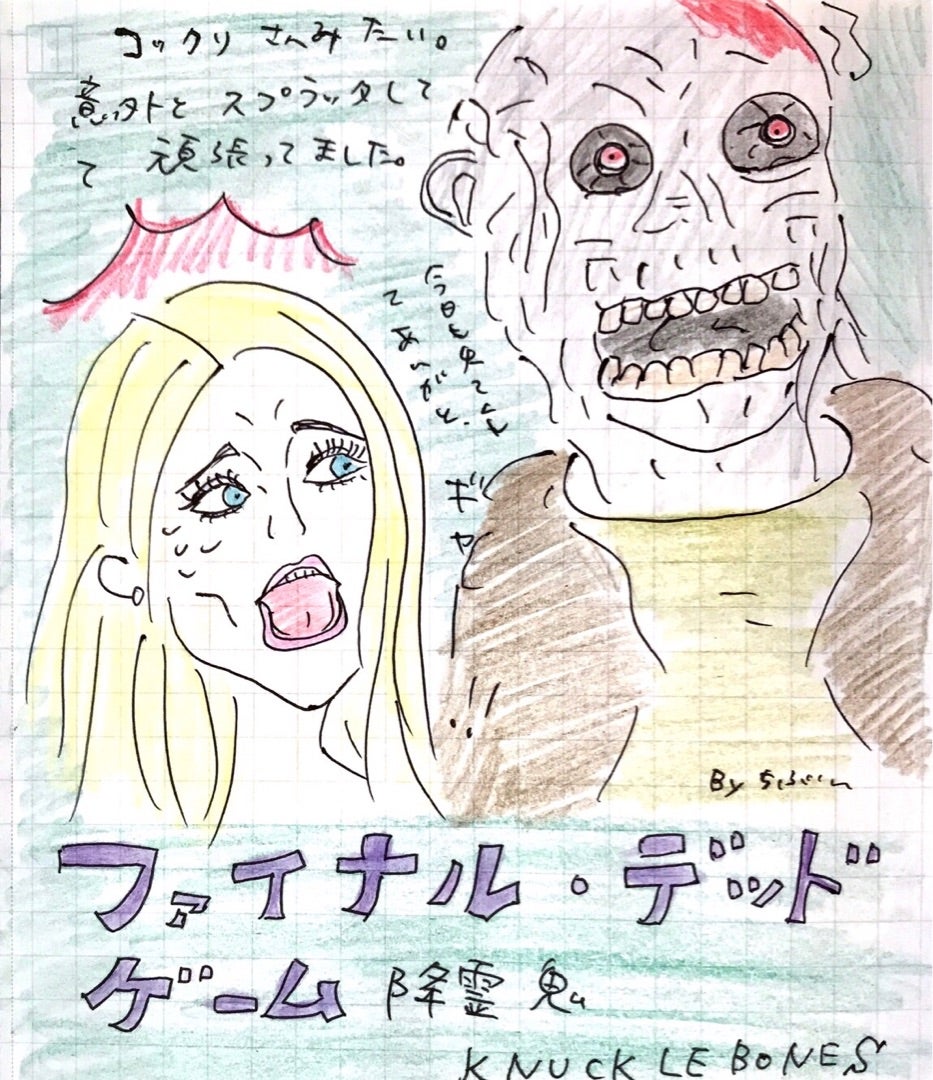 コックリさんみたい。
意外とスプラッタして
て頑張ってました。
今日も見て
てありがと.
ギャ
!!
By
ファイナル・デッド
ゲーム 降霊鬼
KNUCKLEBONES